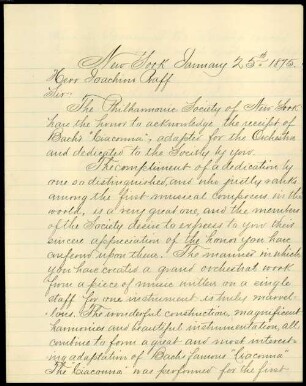 New York January 25th 1875.
Herr Joachim Raff
Sir
The Philharmonic Society of New York
has the honor to acknowledge the receipt of
Bach's "Ciaconna", adapted for the Orchestra
and dedicated to the Society by you.
The compliment of a dedication by
one so distinguished, and who justly ranks
among the first musical composers in the
world, is a very great one, and the members
of the Society desire to express to you their
sincere appreciation of the honor you have
conferred upon them. The manner in which
you have created a grand orchestral work
from a piece of music written on a single
staff for one instrument is truly marvel-
lous. The wonderful construction, magnificent
harmonies and beautiful instrumentation, all
combine to form a great and most interest-
ing adaptation of Bach's famous Ciaconna"
The "Ciaconna" was performed for the first